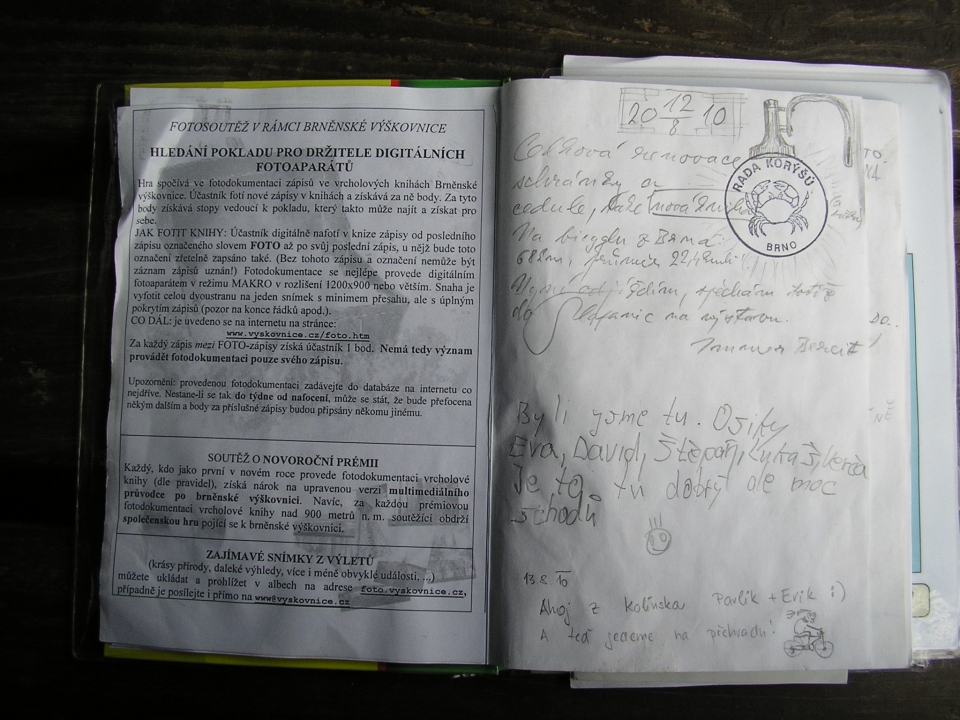 FOTOSOUTĚŽ V RÁMCI BRNĚNSKÉ VÝŠKOVNICE
HLEDÁNÍ POKLADU PRO DRŽITELE DIGITÁLNÍCH
FOTOAPARÁTŮ
Hra spočívá ve fotodokumentaci zápisů ve vrcholových knihách Brněnské
výškovnice. Účastník fotí nové zápisy v knihách a získává za ně body. Za tyto
body získává stopy vedoucí k pokladu, který takto může najít a získat pro
sebe.
JAK FOTIT KNIHU: Účastník digitálně nafotí v knize zápisy od posledního
zápisu označeného slovem FOTO až po svůj poslední zápis, u nějž bude toto
označení zřetelně zapsáno také. (Bez tohoto zápisu a označení nemůže být
záznam zápisů uznán!) Fotodokumentace se nejlépe provede digitálním
fotoaparátem v režimu MAKRO v rozlišení 1200x900 nebo větším. Snaha je
vyfotit celou dvoustranu na jeden snímek s minimem přesahu, ale s úplným
pokrytím zápisů (pozor na konce řádků apod.).
CO DÁL: je uvedeno se na internetu na stránce:
www.vyskovnice.cz/foto.htm
Za každý zápis mezi FOTO-zápisy získá účastník 1 bod. Nemá tedy význam
provádět fotodokumentaci pouze svého zápisu.
Upozornění: provedenou fotodokumentaci zadávejte do databáze na internetu co
nejdříve. Nestane-li se tak do týdne od nafocení, může se stát, že bude přefocena
někým dalším a body za příslušné zápisy budou připsány někomu jinému.
SOUTĚŽ O NOVOROČNÍ PRÉMII
Každý, kdo jako první v novém roce provede fotodokumentaci vrcholové
knihy (dle pravidel), získá nárok na upravenou verzi multimediálního
průvodce po brněnské výškovnici. Navíc, za každou prémiovou
fotodokumentaci vrcholové knihy nad 900 metrů n. m. soutěžící obdrží
společenskou hru pojící se k brněnské výškovnici.
ZAJÍMAVÉ SNÍMKY Z VÝLETŮ
(krásy přírody, daleké výhledy, více i méně obvyklé události, ...)
můžete ukládat a prohlížet v albech na adrese foto.vyskovnice.cz,
případně je posílejte i přímo na www@vyskovnice.cz
20 12/8 10
Celková renovace
schránky a
cedule, také nová kniha
RADA KORÝŠŮ
BRNO
Na bicyklu z Brna:
do Slofanic na výstavu.
Byli jsme tu. Osiky
Eva, David, Štěpán, Lukáš,
Je to tu dobrý ale moc
schodů
13 8 10
Ahoj z Kolínska Pavlík + Erik :)
A teď jedeme na přehradu!